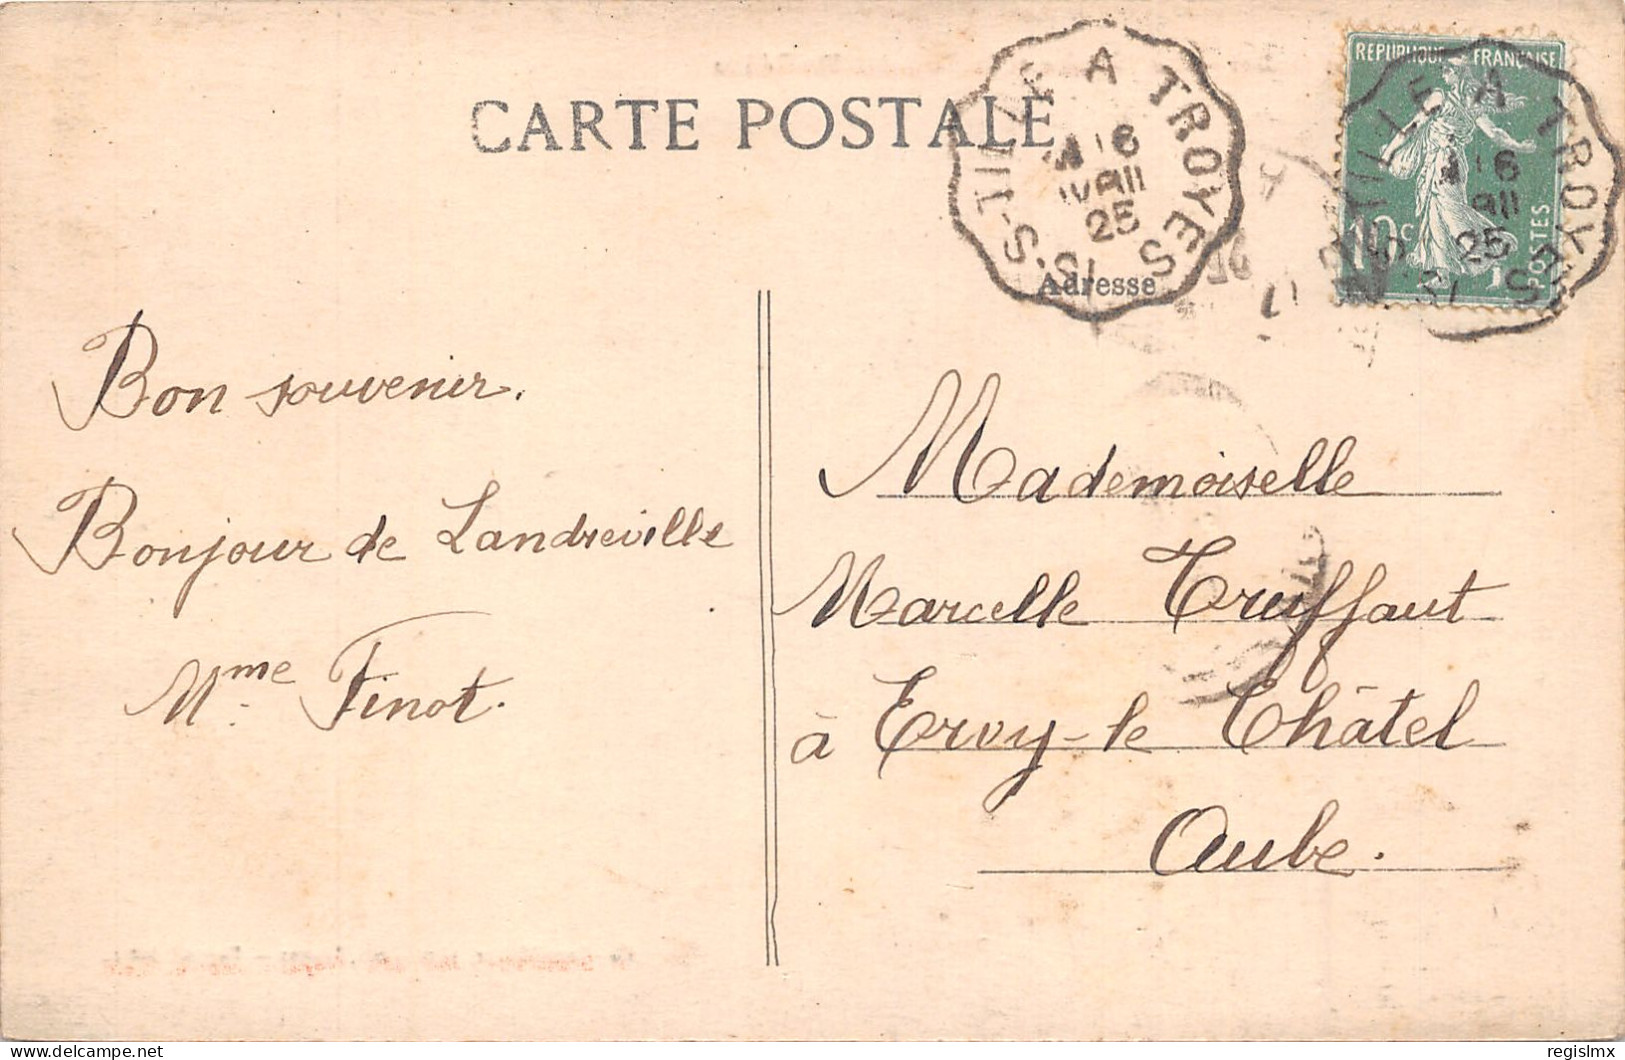 CARTE POSTALE
IS-S-TILLE A TROYES
16
25
REPUBLIQUE FRANÇAISE
10c
POSTES
TILLE A TROYES
16
25
Adresse
Bon souvenir.
Bonjour de Landreville
Mme Finot.
Mademoiselle
Marcelle Truffaut
à Ervy-le Châtel
Aube.
delcampe.net
regislmx